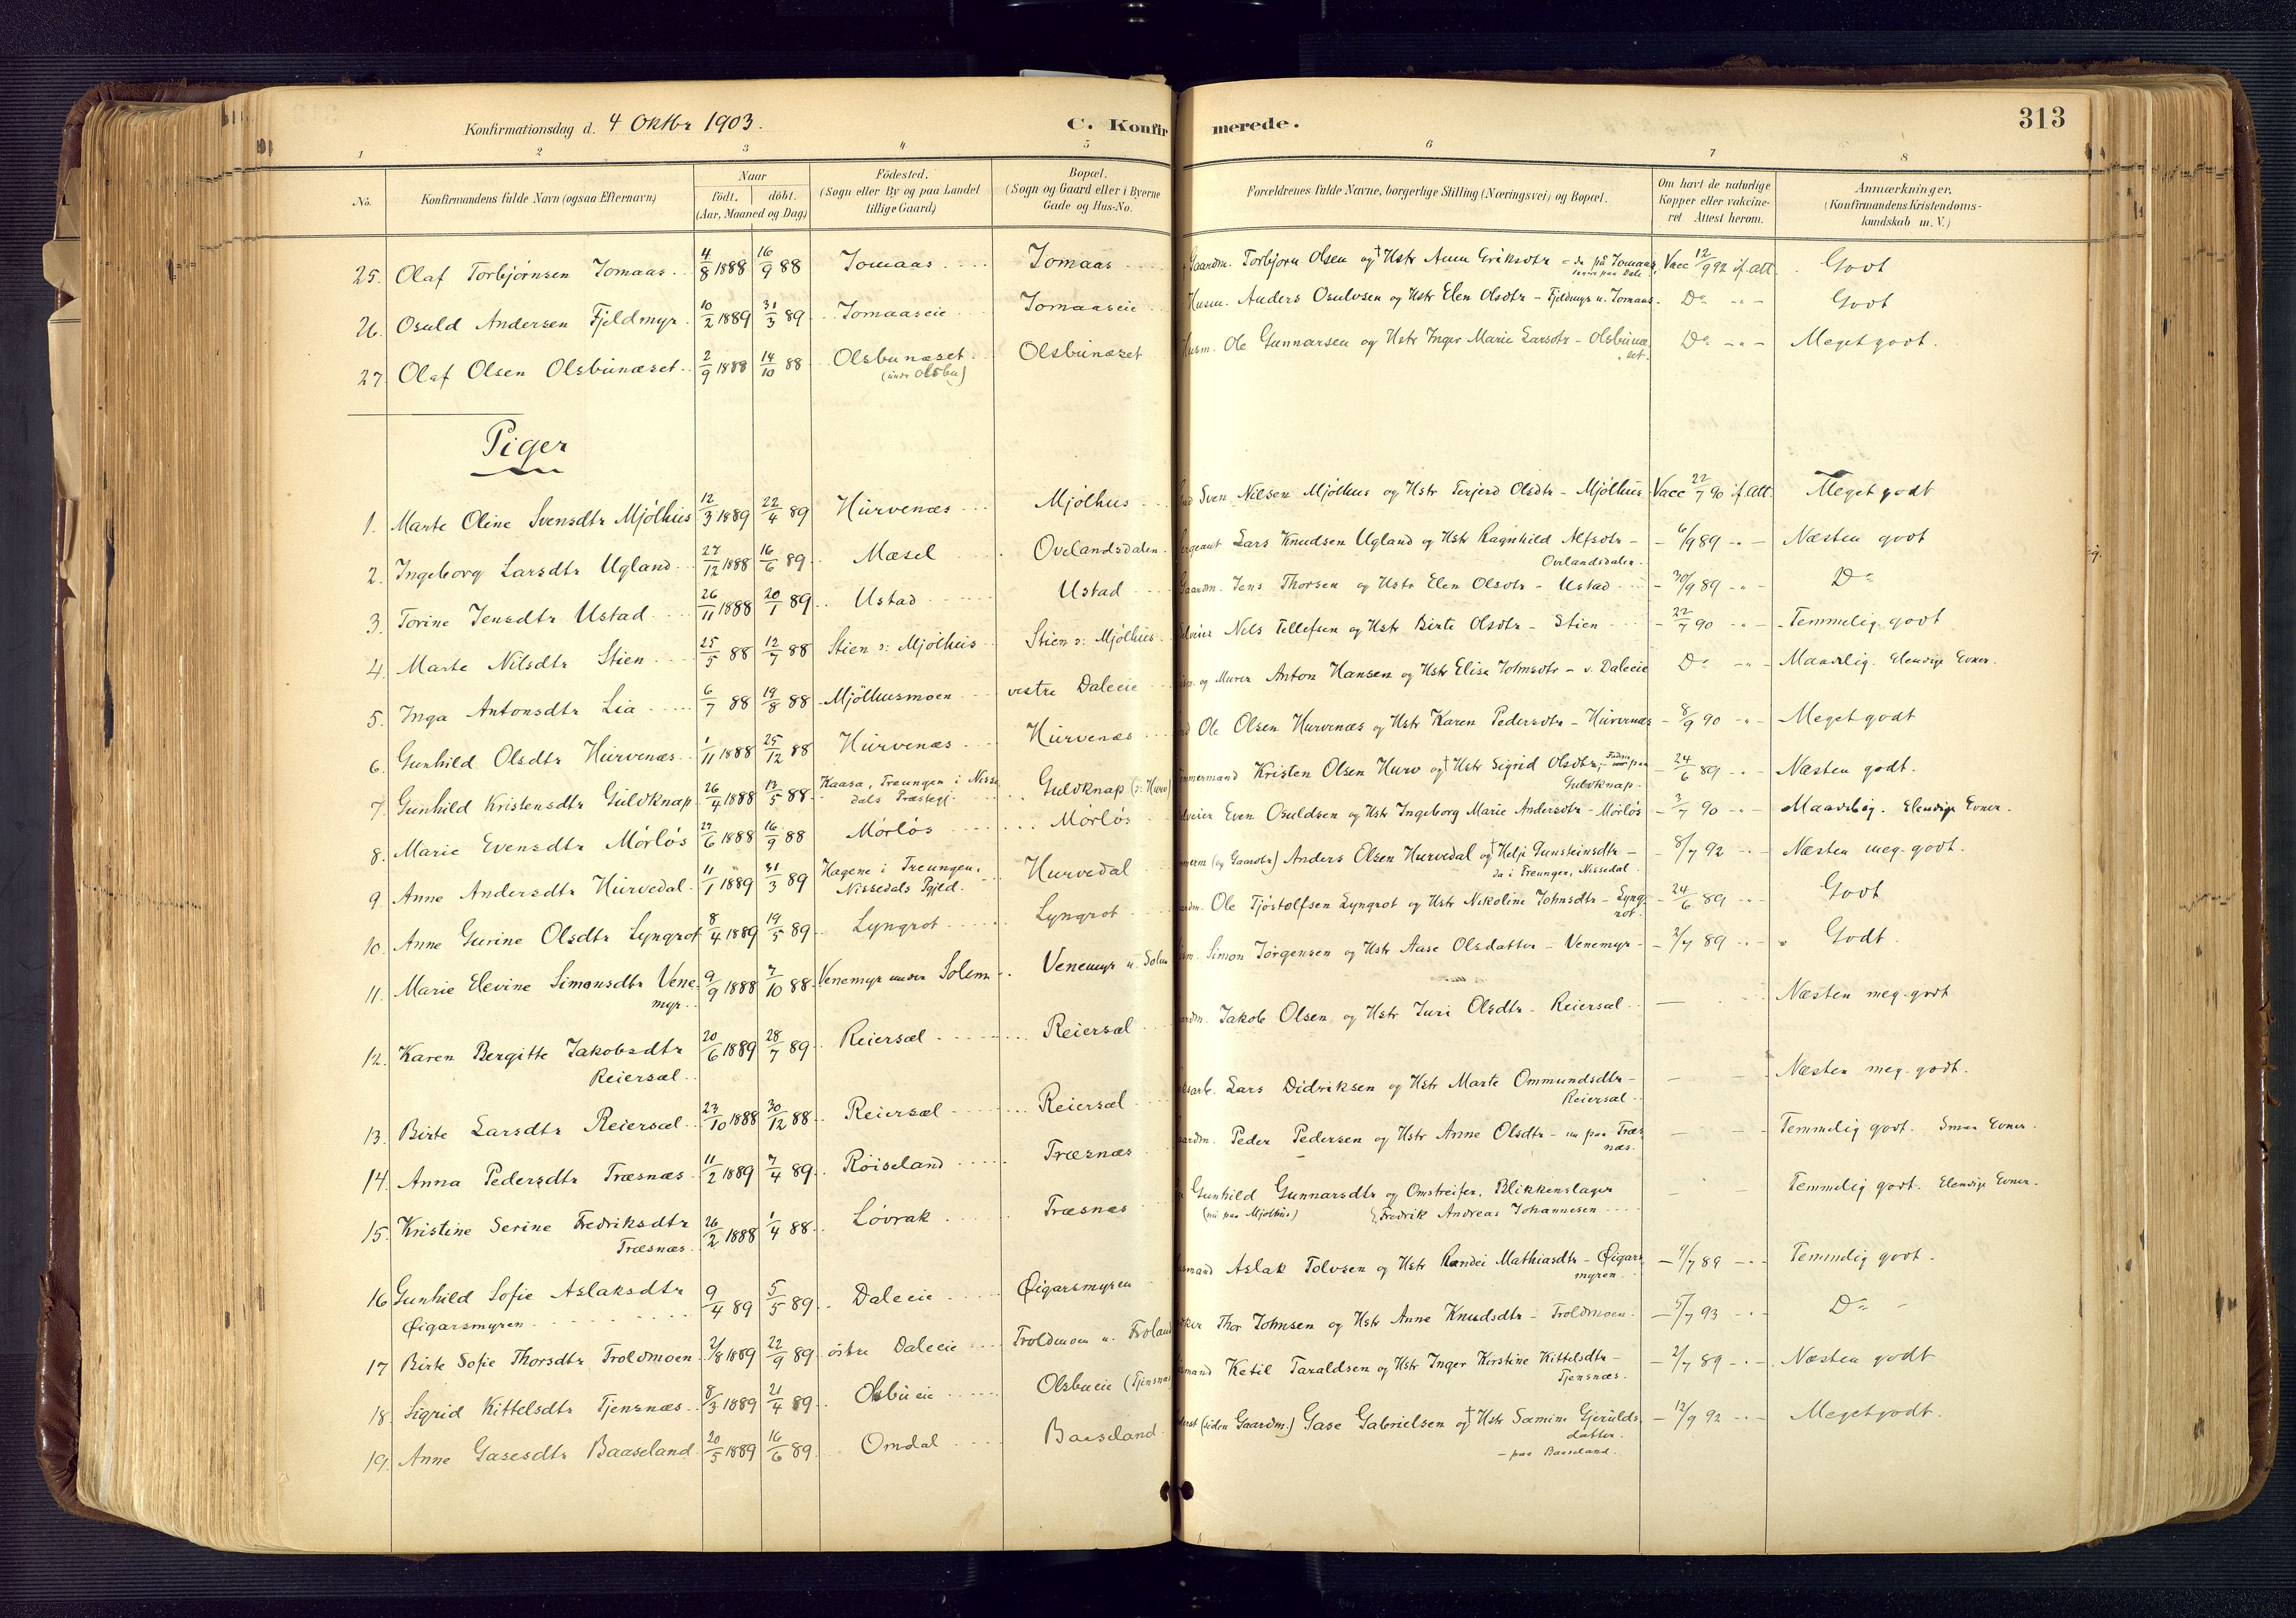 Konfirmationsdag d. 4 Oktbr 1903. C. Konfirmerede. 313
1 2 3 4 5 6 7 8
No. Konfirmandens fulde Navn (ogsaa Efternavn) Naar født. døbt. (Aar, Maaned og Dag) Fødested. (Sogn eller By og paa Landet tillige Gaard) Bopæl. (Sogn og Gaard eller i Byerne Gade og Hus-No. Forældrenes fulde Navne, borgerlige Stilling (Næringsvei) og Bopæl. Om havt de naturlige Kopper eller vakcineret Attest herom. Anmærkninger. (Konfirmandens Kristendomskundskab m. V.)
25. Olaf Torbjørnsen Jomaas 4/8 1888 16/9 88 Jomaas Jomaas Gaardm. Torbjørn Olsen og † Hstr Anne Eriksdtr - da på Jomaas Vacc 12/9 92 if. att. Godt
26. Osuld Andersen Fjeldmyr 10/2 1889 31/3 89 Jomaaseie Jomaaseie Husm. Anders Osulvsen og Hstr Elen Olsdtr - Fjeldmyr u. Jomaas. Do Godt
27 Olaf Olsen Olsbunæset 2/9 1888 14/10 88 Olsbunæset (under Olsbu) Olsbunæset Husm. Ole Gunnarsen og Hstr Inger Marie Larsdtr - Olsbunæset. Do Meget godt.
Piger
1. Marte Oline Svensdtr Mjølhus 12/3 1889 22/4 89 Hurvenæs Mjølhus Sven Nilsen Mjølhus og Hstr Terjerd Olsdtr - Mjølhus Vacc 22/7 90 if. att. Meget godt
2. Ingeborg Larsdtr Ugland 27/12 1888 16/6 89 Mæsel Ovelandsdalen Sergeant Lars Knudsen Ugland og Hstr Ragnhild Alfsdtr - Ovelandsdalen - 6/9 89 Næsten godt
3. Torine Jensdtr Ustad 26/11 1888 20/1 89 Ustad Ustad Gaardm. Jens Thorsen og Hstr Elen Olsdtr - Ustad - 30/9 89 Do
4. Marte Nilsdtr Stien 25/5 88 12/7 88 Stien v: Mjølhus Stien v: Mjølhus Nils Tellefsen og Hstr Birte Olsdtr - Stien - 22/7 90 Temmelig godt
5. Inga Antonsdtr Lia 6/7 88 19/8 88 Mjølhusmoen vestre Daleeie og Murer Anton Hansen og Hstr Elise Johnsdtr - v. Daleeie Do Maadelig. Elendige Evner.
6. Gunhild Olsdtr Hurvenæs 1/11 1888 25/12 88 Hurvenæs Hurvenæs Ole Olsen Hurvenæs og Hstr Karen Pedersdtr - Hurvenæs - 8/9 90 Meget godt
7. Gunhild Kristensdtr Guldknap 26/4 1888 13/5 88 Kaasa, Treungen i Nissedals Præstegj. Guldknap (v: Hurv) Tømmermand Kristen Olsen Hurv og † Hstr Sigrid Olsdtr, Guldknap - 24/6 89 Næsten godt.
8. Marie Evensdtr Mørløs 27/6 1888 16/9 88 Mørløs Mørløs Even Osuldsen og Hstr Ingeborg Marie Andersdtr - Mørløs - 3/7 90 Maadelig. Elendige Evner.
9 Anne Andersdtr Hurvedal 11/1 1889 31/3 89 Hagene i Treungen, Nissedals Pgjeld. Hurvedal (og Gaardbr) Anders Olsen Hurvedal og † Helje Gunsteinsdtr - da i Treungen, Nissedal - 8/7 92 Næsten meg. godt.
10. Anne Gurine Olsdtr Lyngrot 8/4 1889 19/5 89 Lyngrot Lyngrot Ole Tjøstolfsen Lyngrot og Hstr Nikoline Johnsdtr - Lyngrot. - 24/6 89 Godt
11. Marie Elevine Simonsdtr Venemyr 9/9 1888 7/10 88 Venemyr under Solem Venemyr u. Solem Simon Jørgensen og Hstr Aase Olsdatter - Venemyr - 2/7 89 Godt.
12. Karen Bergitte Jakobsdtr Reiersæl 20/6 1889 28/7 89 Reiersæl Reiersæl Jakob Olsen og Hstr Juri Olsdtr - Reiersæl Næsten meg. godt
13. Birte Larsdtr Reiersæl 23/10 1888 30/12 88 Reiersæl Reiersæl Lars Didriksen og Hstr Marte Ommundsdtr - Reiersæl Næsten meg. godt.
14. Anna Pedersdtr Træsnæs 11/2 1889 7/4 89 Røiseland Træsnæs Peder Pedersen og Hstr Anne Olsdtr - nu paa Træsnæs. Temmelig godt. Smaa Evner.
15. Kristine Serine Fredriksdtr Træsnæs 26/2 1888 1/4 88 Løvrak Træsnæs Gunhild Gunnarsdtr og Omstreifer, Blikkenslager (nu paa Mjølhus) Fredrik Andreas Johannesen Temmelig godt. Elendige Evner.
16 Gunhild Sofie Aslaksdtr Øigarsmyren 9/4 89 5/5 89 Daleeie Øigarsmyren Aslak Tolvsen og Hstr Randei Mathiasdtr - Øigarsmyren - 9/7 89 Temmelig godt.
17 Birte Sofie Thorsdtr Troldmoen 2/8 1889 22/9 89 østre Daleeie Troldmoen u. Froland Thor Johnsen og Hstr Anne Knudsdtr - Troldmoen - 5/7 93 Do
18. Sigrid Kittelsdtr Tjensnæs 8/3 1889 21/4 89 Olsbueie Olsbueie (Tjensnæs) Ketil Taraldsen og Hstr Inger Kirstine Kittelsdtr - Tjensnæs. - 2/7 89 Næsten godt
19. Anne Gasesdtr Baaseland 20/5 1889 16/6 89 Omdal Baaseland (siden Gaardm.) Gase Gabrielsen og † Hstr Samine Gjeruldsdatter - paa Baaseland. - 12/9 92 Meget godt.